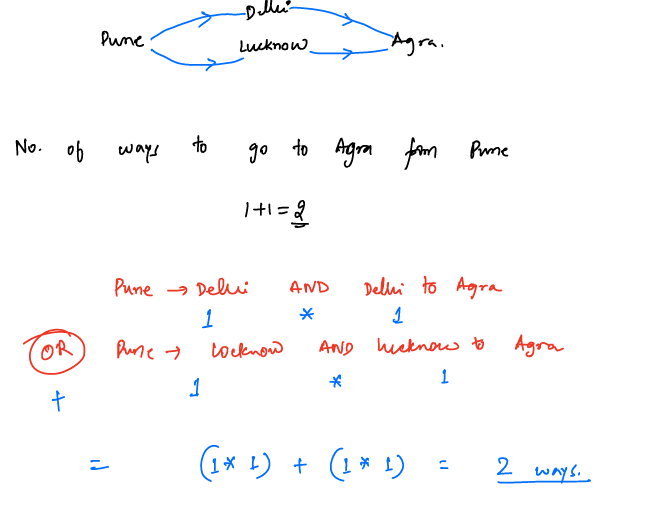 Delhi
Pune
Lucknow
Agra.
No. of ways to go to Agra from Pune
1+1=2
Pune → Delhi AND Delhi to Agra
1 * 1
OR Pune → Locknow AND Lucknow to Agra
+ 1 * 1
= (1 * 1) + (1 * 1) = 2 ways.